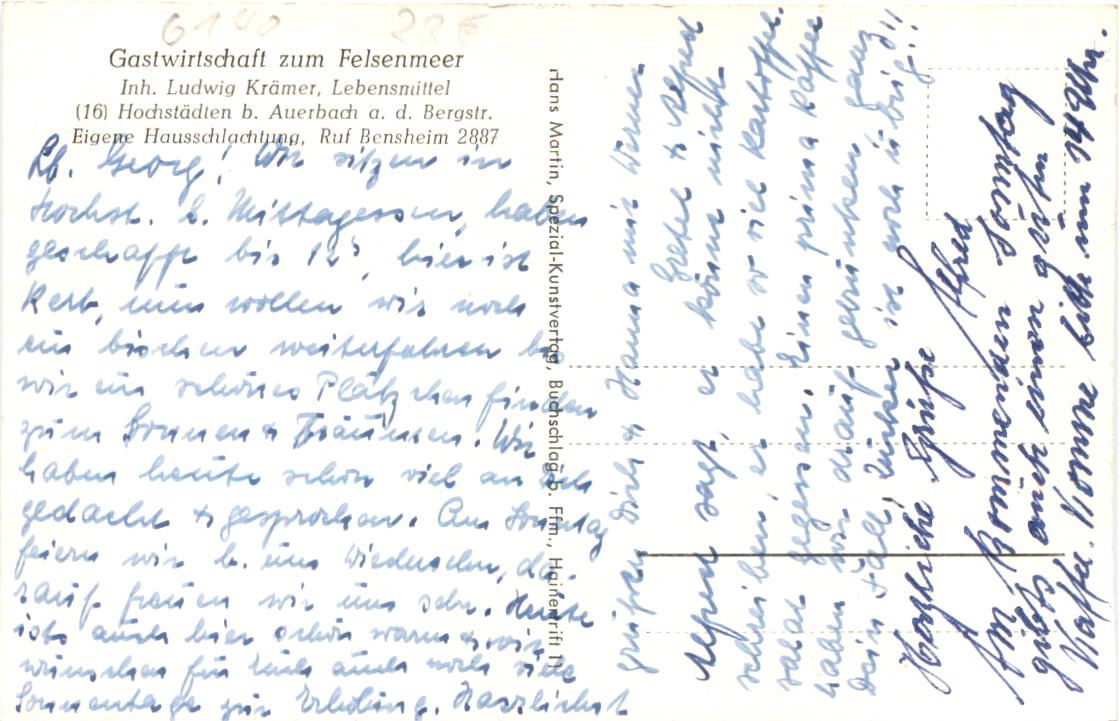 6140 23€
Gastwirtschaft zum Felsenmeer
Inh. Ludwig Krämer, Lebensmittel
(16) Hochstädten b. Auerbach a. d. Bergstr.
Eigene Hausschlachtung, Ruf Bensheim 2887
Lb. Georg! Wir sitzen in
Hochst. b. Mittagessen, haben
geschafft bis 12⁵, hier ist
Kerb, nun wollen wir noch
ein bischen weiterfahren bis
wir ein schönes Plätzchen finden
zum Sonnen & Träumen. Wir
haben heute schon viel an Dich
gedacht & gesprochen. Am Sonntag
feiern wir b. uns Wiedersehn, da-
rauf freuen wir uns sehr. Heute
ists auch hier schön warm & wir
wünschen für Euch auch noch viele
Sonnentage zur Erholung. Herzlichst
grüßen Dich & Hanna mit Werner
Gretel & Alfred
Alfred sagt, er könne nicht
schreiben, er habe so viel Kartoffel-
salat gegessen. Einen prima Kaffee
haben wir drauf getrunken ganz
Dein Fall, Zucker ist noch übrig!!
Herzliche Grüße Alfred
Am kommenden Sonntag
gibts auch einen guten
Kaffee. Komme bitte um 14 Uhr.
Hans Martin, Spezial-Kunstverlag, Buchschlag b. Ffm., Hainertrift 11